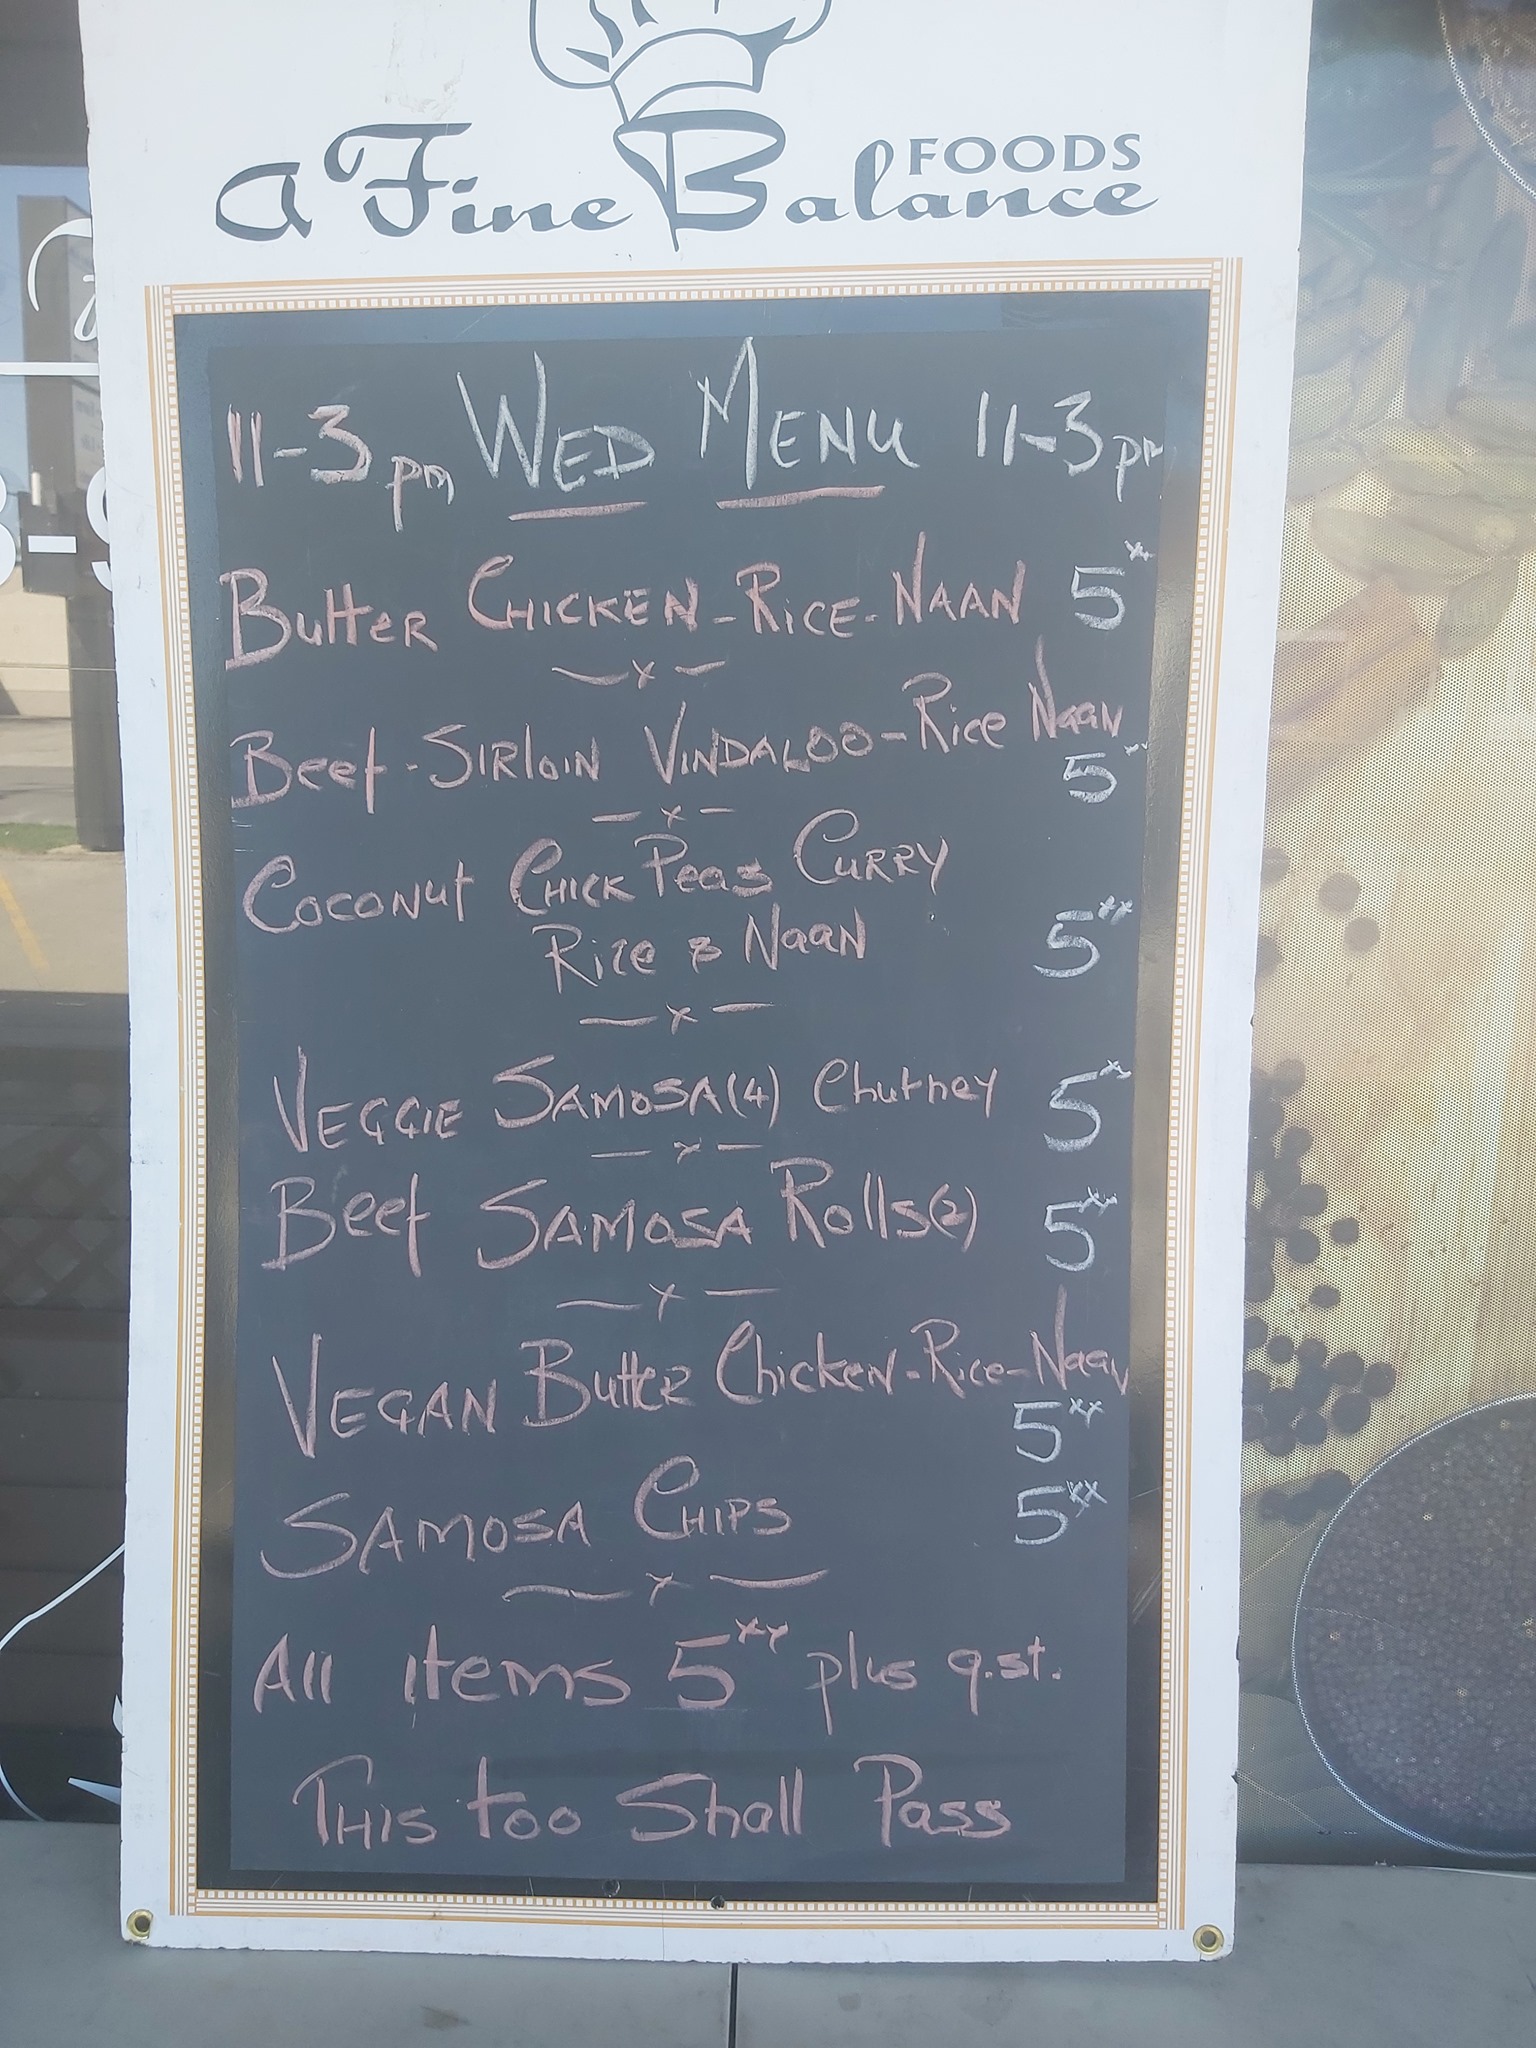 FOODS
A Fine Balance
11-3pm WED MENU 11-3pm
Butter CHICKEN-RICE-NAAN 5xx
Beef-SIRloIN VINDALOO-Rice Naan
5xx
Coconut CHICK Peas CURRY
Rice & Naan 5xx
VEGGIE SAMOSA(4) Chutney 5xx
Beef SAMOSA Rolls(2) 5xx
VEGAN Butter Chicken-Rice-Naan
5xx
SAMOSA CHIPS 5xx
All items 5xx plus g.st.
THis too Shall Pass